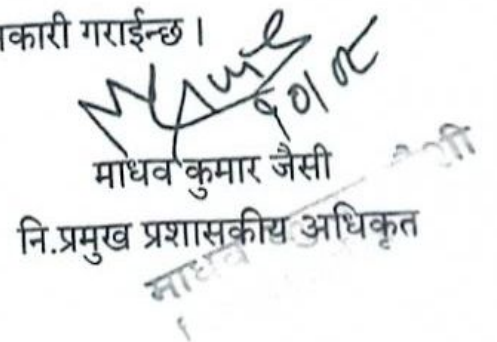 कारी गराईन्छ ।
१०।८
माधव कुमार जैसी
नि.प्रमुख प्रशासकीय अधिकृत
माधव